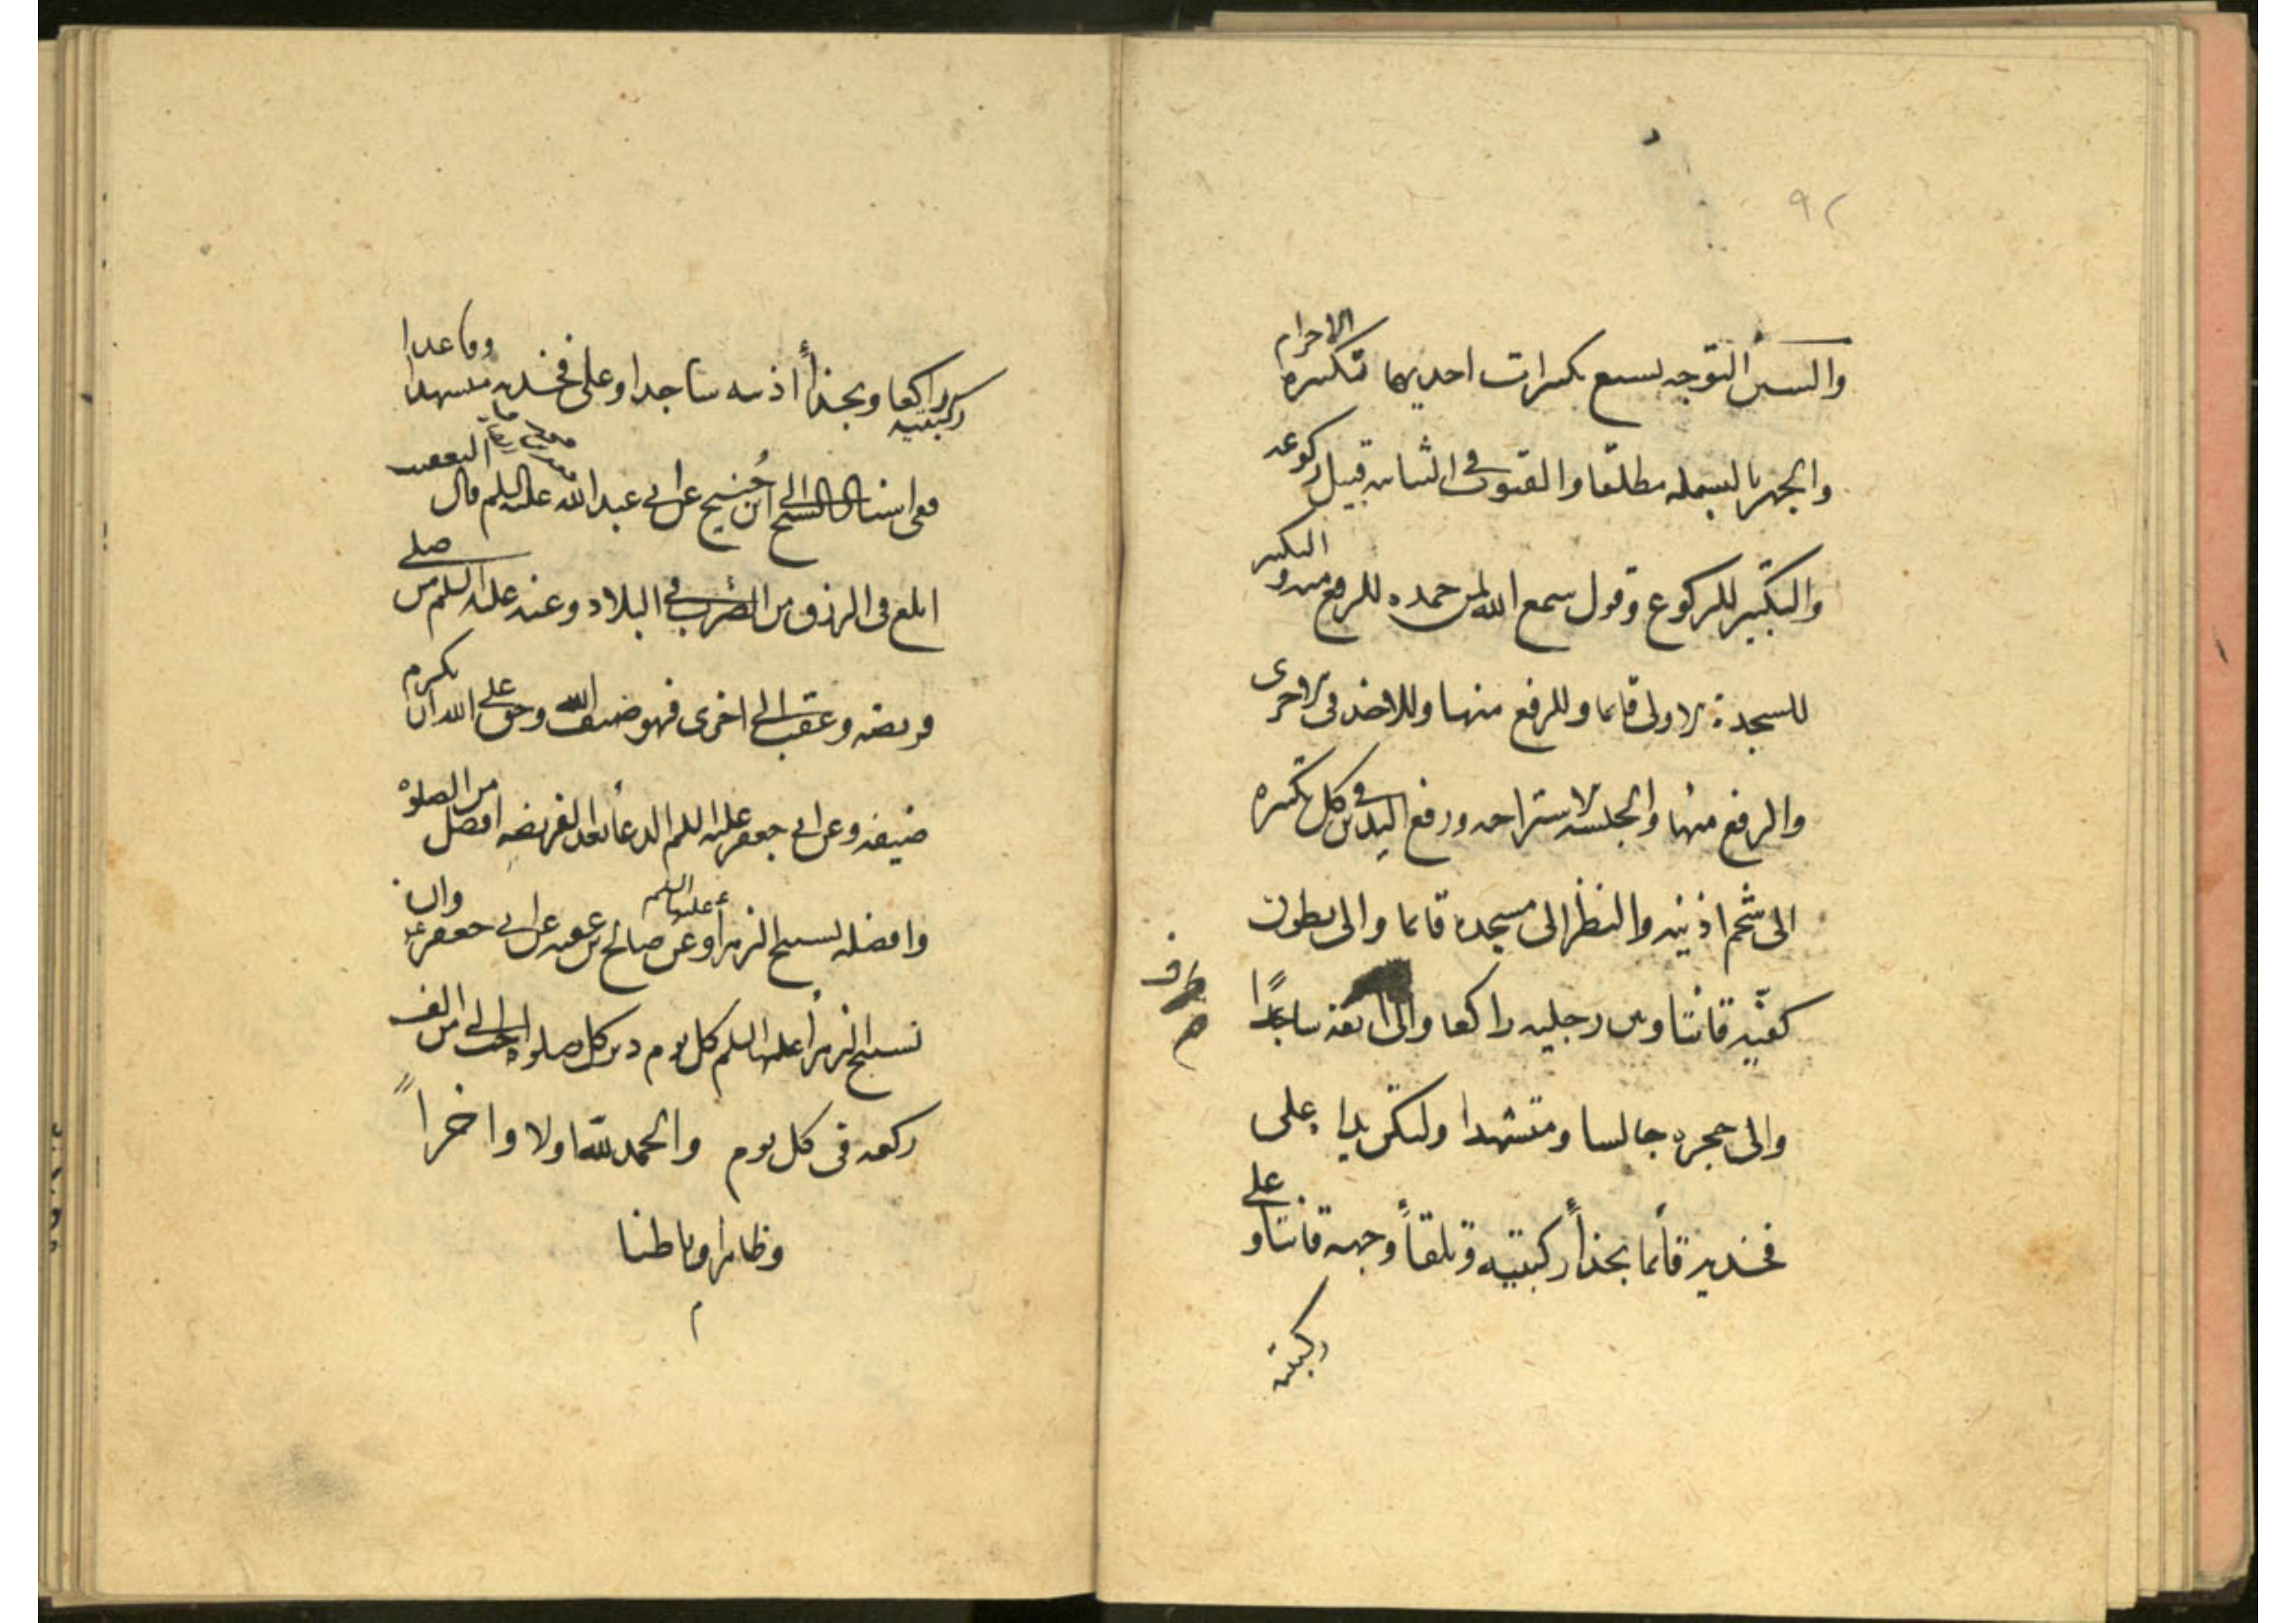 ٩٢
والسنن التوجه بسبع تكبيرات احديها تكبيرة الاحرام
والجهر بالبسمله مطلقا والقنوت في الثانيه قبيل ركوعه
والتكبير للركوع وقول سمع الله لمن حمده للرفع منه والتكبير
للسجدة الاولى قائما وللرفع منها وللاخذ في الاخرى
والرفع منها والجلسة للاستراحه ورفع اليدين في كل تكبيره
الى شحم اذنيه والنظر الى مسجده قائما والى بطون
كفيه قانتا وبين رجليه راكعا والى انفه ساجدًا
طرف
والى حجره جالسا ومتشهدا ولتكن يدا على
فخذيه قائما بحذأ ركبتيه وتلقأ وجهه قانتا وعلى
ركبتيه
ركبتيه راكعا وبحذأ اذنيه ساجدا وعلى فخذيه متشهدا وقاعدا
التعقيب
فعى اسناد الشيخ الى ابن صُبيح عن ابي عبدالله عليه السلم قال
ابلغ في الرزق من الضرب في البلاد وعنه عليه السلم من صلى
فريضه وعقب الى اخرى فهو ضيف الله وحق على الله ان يكرم
ضيفه وعن ابي جعفر عليه السلم الدعأ بعد الفريضه افضل من الصلوة
وافضله تسبيح الزهرأ عليها السلم وعن صالح بن عقبه عن ابي جعفر ع وان
تسبيح الزهرأ عليها السلم كل يوم دبر كل صلوة احب الى من الف
ركعه في كل يوم والحمد لله اولا واخراً
وظاهرا وباطنا
م